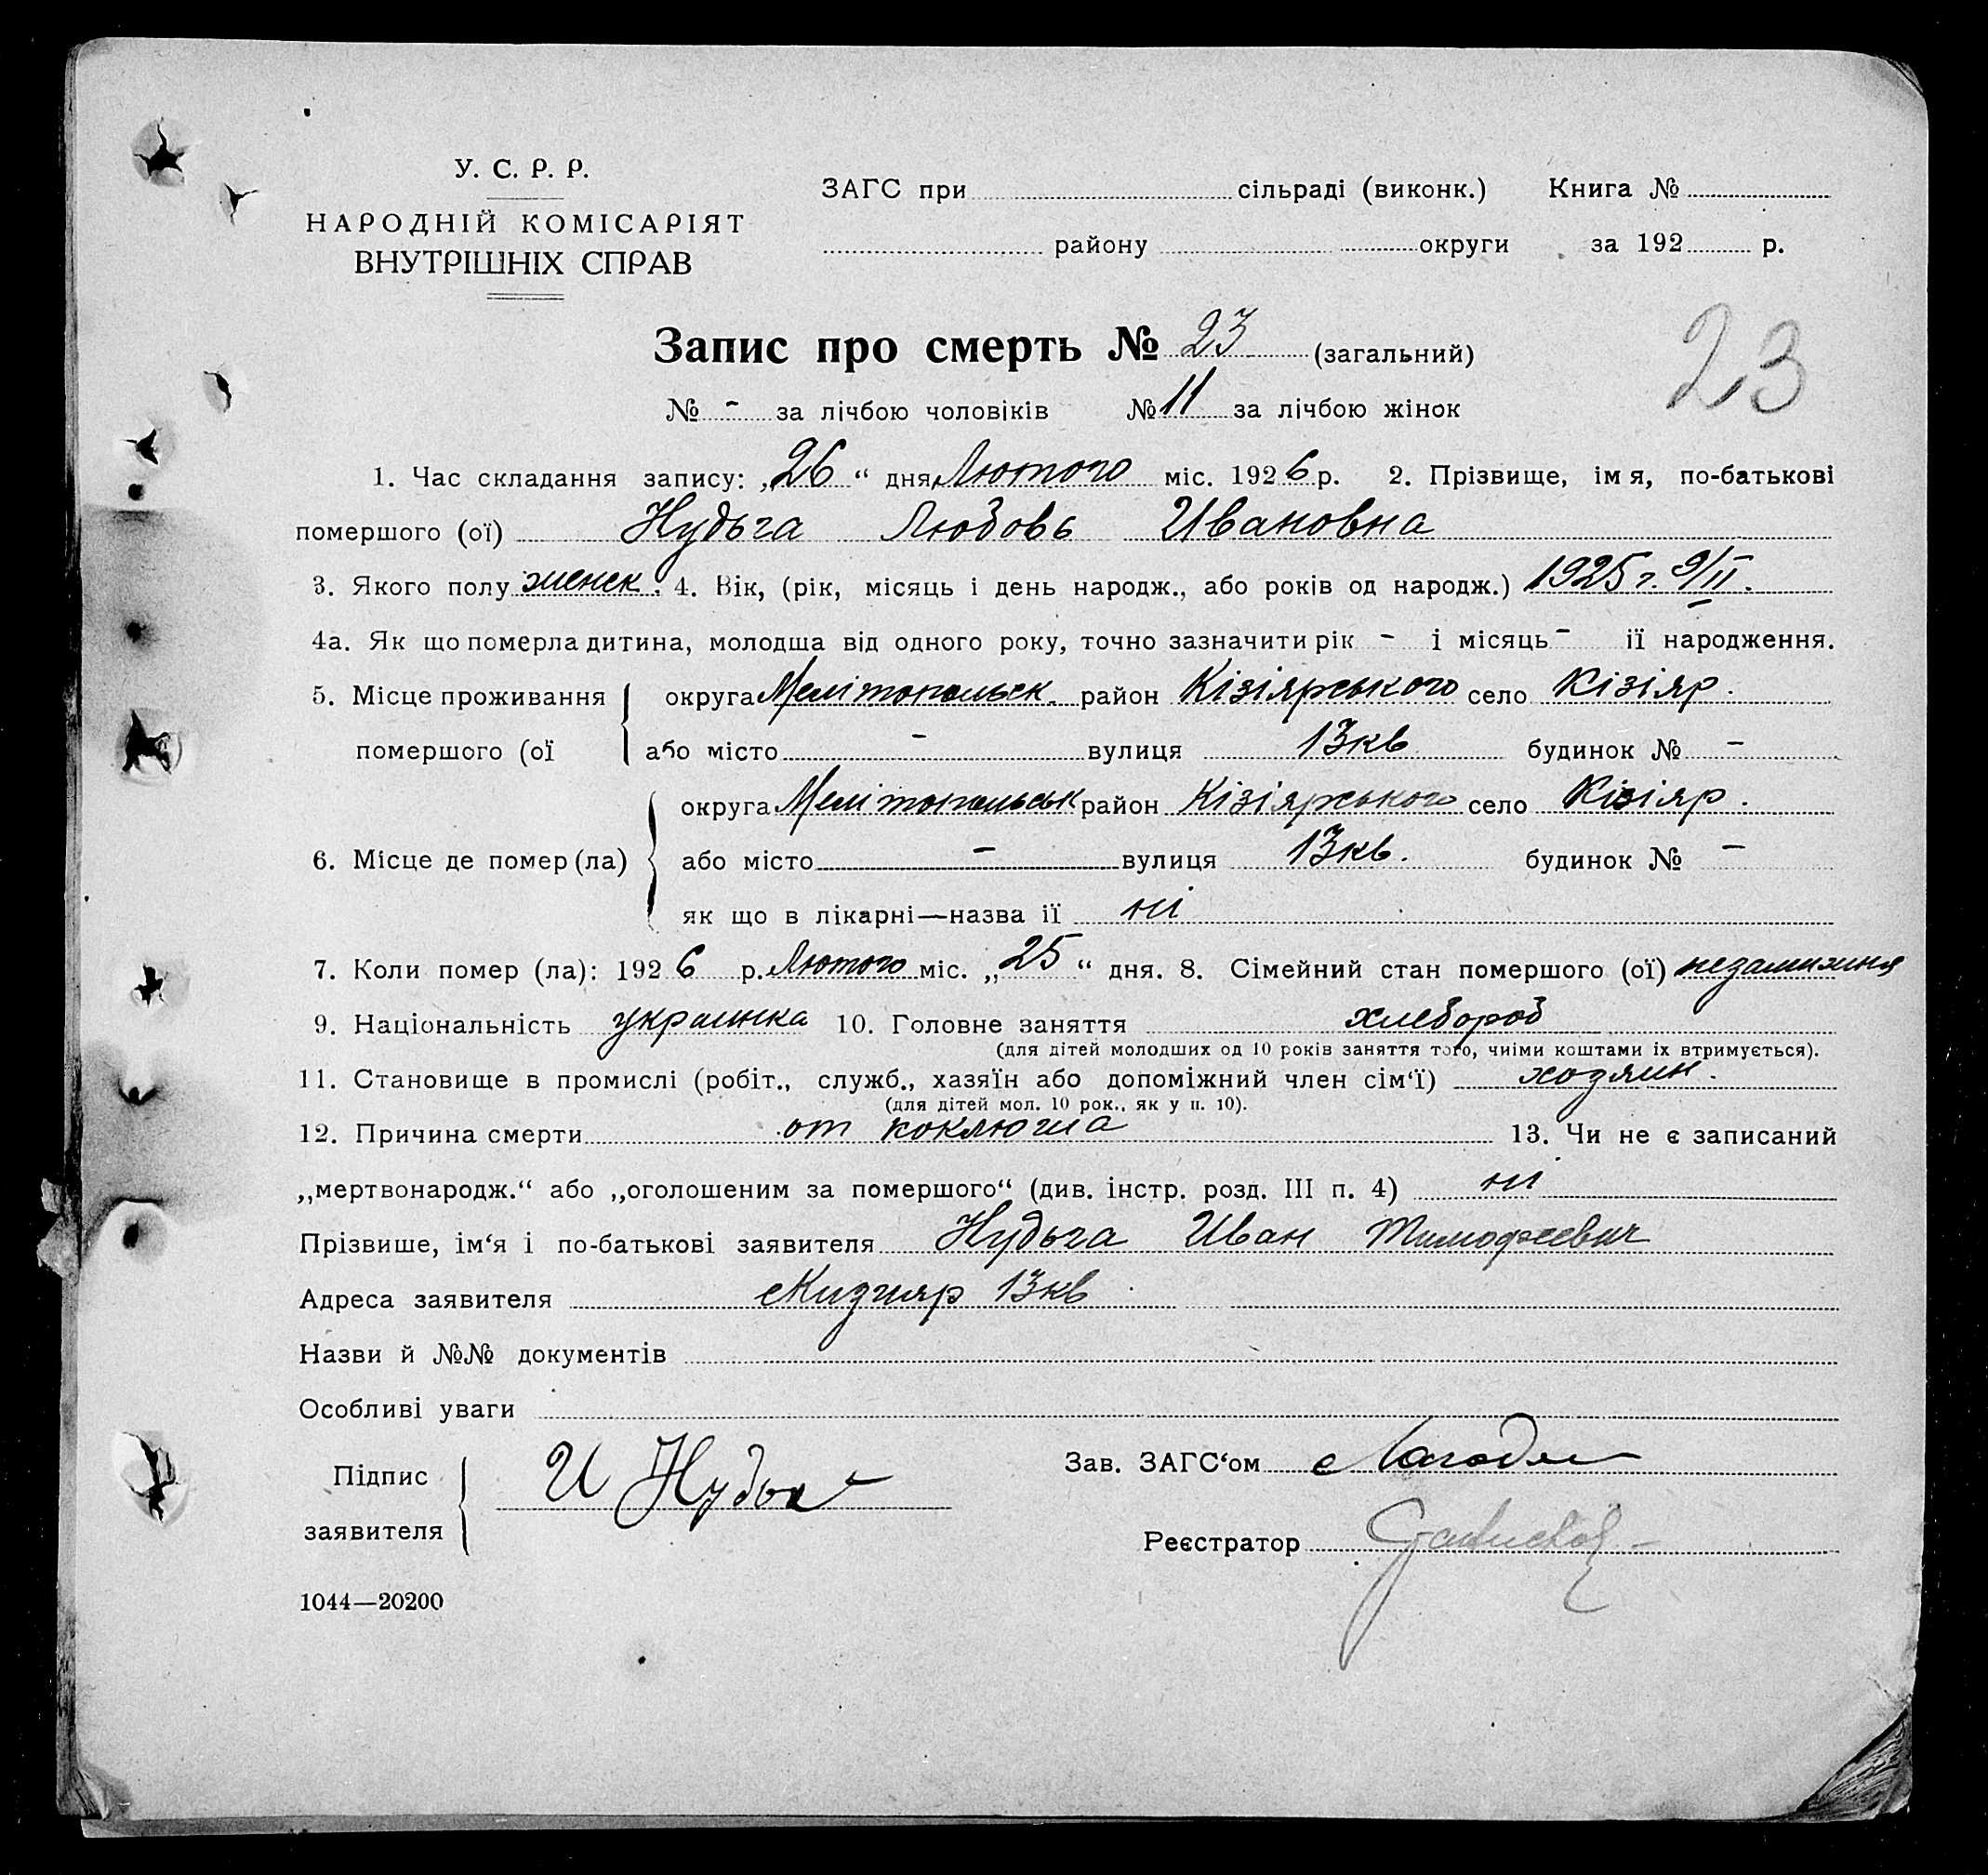 У. С. Р. Р.
НАРОДНІЙ КОМІСАРІЯТ
ВНУТРІШНІХ СПРАВ
ЗАГС при сільраді (виконк.) Книга №
району округи за 192 р.
Запис про смерть № 23 (загальний)
23
№ - за лічбою чоловіків № 11 за лічбою жінок
1. Час складання запису: „26“ дня Лютого міс. 1926 р. 2. Прізвище, імя, по-батькові
помершого (ої) Нудьга Любовь Ивановна
3. Якого полу женск. 4. Вік, (рік, місяць і день народж., або років од народж.) 1925 г. 9/II.
4а. Як що померла дитина, молодша від одного року, точно зазначити рік - і місяць - ії народження.
5. Місце проживання округа Мелітопольск. район Кізіярського село Кізіяр.
помершого (ої або місто - вулиця 13кв будинок № -
округа Мелітопольськ район Кізіярського село Кізіяр.
6. Місце де помер (ла) або місто - вулиця 13кв. будинок № -
як що в лікарні—назва ії ні
7. Коли помер (ла): 1926 р. Лютого міс. „25“ дня. 8. Сімейний стан помершого (ої)
9. Національність украинка 10. Головне заняття хлебороб
(для дітей молодших од 10 років заняття того, чиїми коштами їх втримується).
11. Становище в промислі (робіт., служб., хазяїн або допоміжний член сім‘ї) хозяин.
(для дітей мол. 10 рок., як у п. 10).
12. Причина смерти от коклюша 13. Чи не є записаний
„мертвонародж.“ або „оголошеним за помершого“ (див. інстр. розд. III п. 4) ні
Прізвише, ім‘я і по-батькові заявителя Нудьга Иван Тимофеевич
Адреса заявителя Кизияр 13кв
Назви й №№ документів
Особливі уваги
Підпис заявителя И Нудьга
Зав. ЗАГС‘ом
Реєстратор
1044—20200